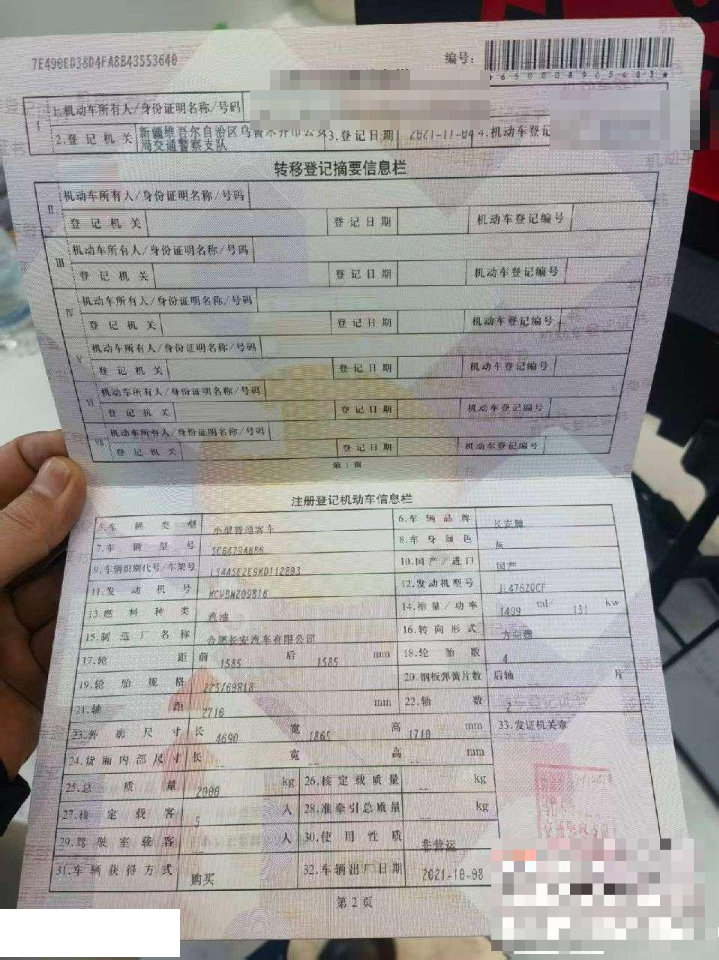 7E490ED38D4FA8B43553640
编号:
I 1.机动车所有人/身份证明名称/号码
2.登记机关 新疆维吾尔自治区乌鲁木齐市公安局交通警察支队 3.登记日期 2021-11-04 4.机动车登记
转移登记摘要信息栏
II 机动车所有人/身份证明名称/号码
登记机关 登记日期 机动车登记编号
III 机动车所有人/身份证明名称/号码
登记机关 登记日期 机动车登记编号
IV 机动车所有人/身份证明名称/号码
登记机关 登记日期 机动车登记编号
V 机动车所有人/身份证明名称/号码
登记机关 登记日期 机动车登记编号
VI 机动车所有人/身份证明名称/号码
登记机关 登记日期 机动车登记编号
VII 机动车所有人/身份证明名称/号码
登记机关 登记日期 机动车登记编号
第1页
注册登记机动车信息栏
5.车辆类型 小型普通客车 6.车辆品牌 长安牌
7.车辆型号 8.车身颜色 灰
9.车辆识别代号/车架号 10.国产/进口 国产
11.发动机号 12.发动机型号 JL476ZQCF
13.燃料种类 汽油 14.排量/功率 1499 ml/ 131 kw
15.制造厂名称 合肥长安汽车有限公司 16.转向形式 方向盘
17.轮距 前 1585 后 1585 mm 18.轮胎数 4
19.轮胎规格 20.钢板弹簧片数 后轴 片
21.轴距 2710 mm 22.轴数 2
23.外廓尺寸 长 4690 宽 1865 高 1710 mm 33.发证机关章
24.货厢内部尺寸 长 宽 高 mm
25.总质量 2000 kg 26.核定载质量 -- kg
27.核定载客 5 人 28.准牵引总质量 -- kg
29.驾驶室载客 -- 人 30.使用性质 非营运
31.车辆获得方式 购买 32.车辆出厂日期 2021-10-08
第2页